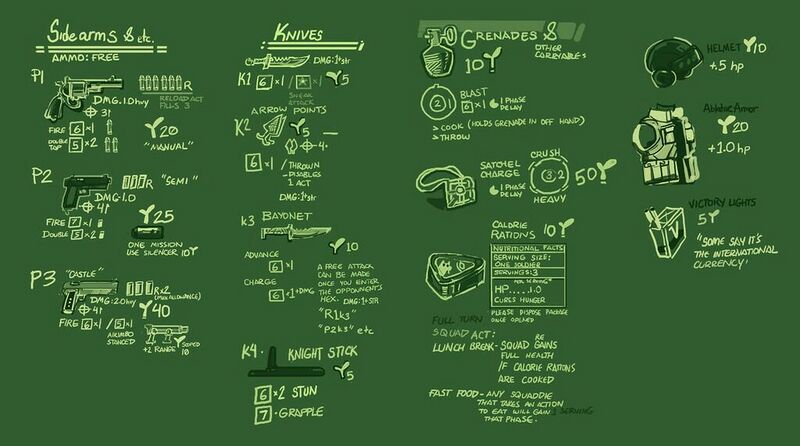 Sidearms & etc.
AMMO: FREE
P1
R
RELOAD ACT
FILLS 3
DMG:1.0 hvy
3
FIRE 6 x1
DOUBLE
TAP 5 x2
20
"MANUAL"
P2
R "SEMI"
DMG:1.0
4
FIRE 7 x1
DOUBLE 5 x2
25
ONE MISSION
USE SILENCER 10
P3 "CASTLE"
R x2
(MAX ALLOWANCE)
DMG:2.0 hvy
4
40
FIRE 6 x1 / 5 x1
AKIMBO
STANCED
+2 RANGE
SCOPED
10
KNIVES
DMG:1+str
K1 6 x1 / x1 5
SNEAK
ATTACK
ARROW POINTS
K2 5
4
6 x1 / THROWN
-DISABLES
1 ACT
DMG:1+str
K3 BAYONET
10
ADVANCE
6 x1
CHARGE
6 x1 +1 DMG
A FREE ATTACK
CAN BE MADE
ONCE YOU ENTER
THE OPPONENT'S
HEX. DMG:1+STR
"R1K3"
"P2K3" etc
K4 - KNIGHT STICK
5
6 x2 STUN
7 - GRAPPLE
GRENADES &
OTHER
CARRYABLES
10
BLAST
2 1 6 x1 1 PHASE
DELAY
> COOK (HOLDS GRENADE IN OFF HAND)
> THROW
SATCHEL
CHARGE
1 PHASE
DELAY
CRUSH
3 2
HEAVY
50
CALORIE
RATIONS 10
NUTRITIONAL FACTS
SERVING SIZE:
ONE SOLDIER
SERVINGS:3
PER SERVING
HP.....1.0
CURES HUNGER
PLEASE DISPOSE PACKAGE
ONCE OPENED
FULL TURN
SQUAD ACT:
LUNCH BREAK - SQUAD REGAINS
FULL HEALTH
IF CALORIE RATIONS
ARE COOKED
FAST FOOD - ANY SQUADDIE
THAT TAKES AN ACTION
TO EAT WILL GAIN 1 SERVING
THAT PHASE.
HELMET 10
+.5 hp
Ablative Armor
20
+1.0 hp
VICTORY LIGHTS
5
"SOME SAY IT'S
THE INTERNATIONAL
CURRENCY"